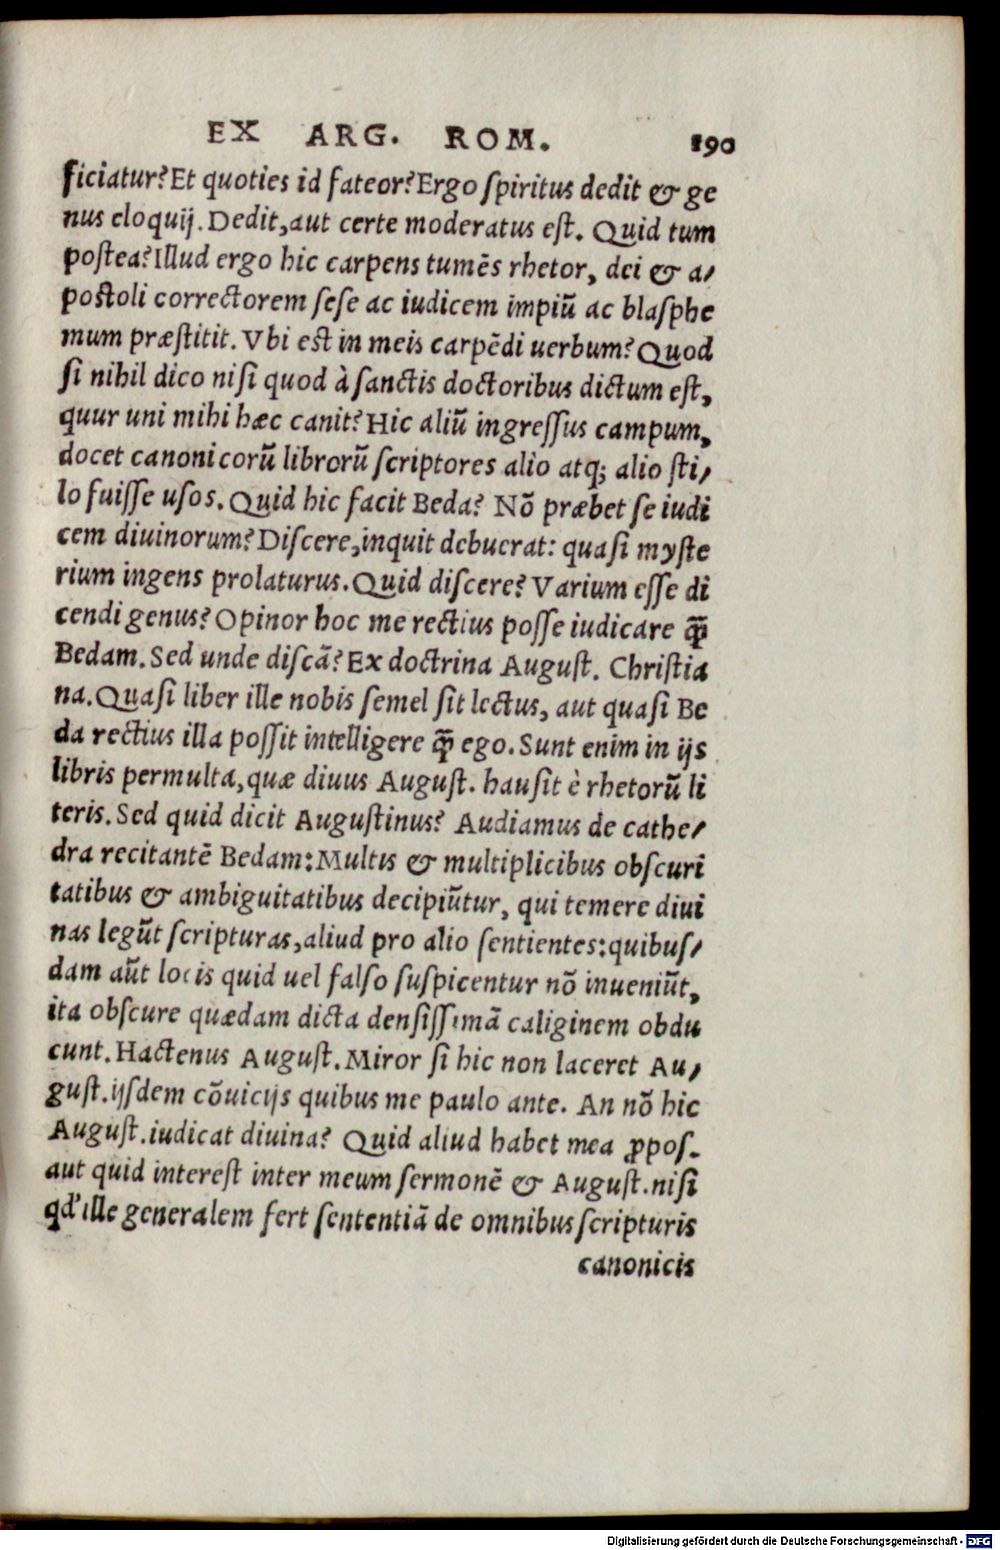 EX ARG. ROM. 190
ficiatur? Et quoties id fateor? Ergo spiritus dedit & ge
nus eloquij. Dedit, aut certe moderatus est. Quid tum
postea? Illud ergo hic carpens tumẽs rhetor, dei & a/
postoli correctorem sese ac iudicem impiũ ac blasphe
mum præstitit. Vbi est in meis carpẽdi uerbum? Quod
si nihil dico nisi quod à sanctis doctoribus dictum est,
quur uni mihi hæc canit? Hic aliũ ingressus campum,
docet canonicorũ librorũ scriptores alio atq; alio sti/
lo fuisse usos. Quid hic facit Beda? Nõ præbet se iudi
cem diuinorum? Discere, inquit debuerat: quasi myste
rium ingens prolaturus. Quid discere? Varium esse di
cendi genus? Opinor hoc me rectius posse iudicare q̃
Bedam. Sed unde discã? Ex doctrina August. Christia
na. Quasi liber ille nobis semel sit lectus, aut quasi Be
da rectius illa possit intelligere q̃ ego. Sunt enim in ijs
libris permulta, quæ diuus August. hausit è rhetorũ li
teris. Sed quid dicit Augustinus? Audiamus de cathe/
dra recitantẽ Bedam: Multis & multiplicibus obscuri
tatibus & ambiguitatibus decipiũtur, qui temere diui
nas legũt scripturas, aliud pro alio sentientes: quibus/
dam aũt locis quid uel falso suspicentur nõ inueniũt,
ita obscure quædam dicta densissimã caliginem obdu
cunt. Hactenus August. Miror si hic non laceret Au/
gust. ijsdem cõuicijs quibus me paulo ante. An nõ hic
August. iudicat diuina? Quid aliud habet mea ꝓpos.
aut quid interest inter meum sermonẽ & August. nisi
qd' ille generalem fert sententiã de omnibus scripturis
canonicis
Digitalisierung gefördert durch die Deutsche Forschungsgemeinschaft - DFG